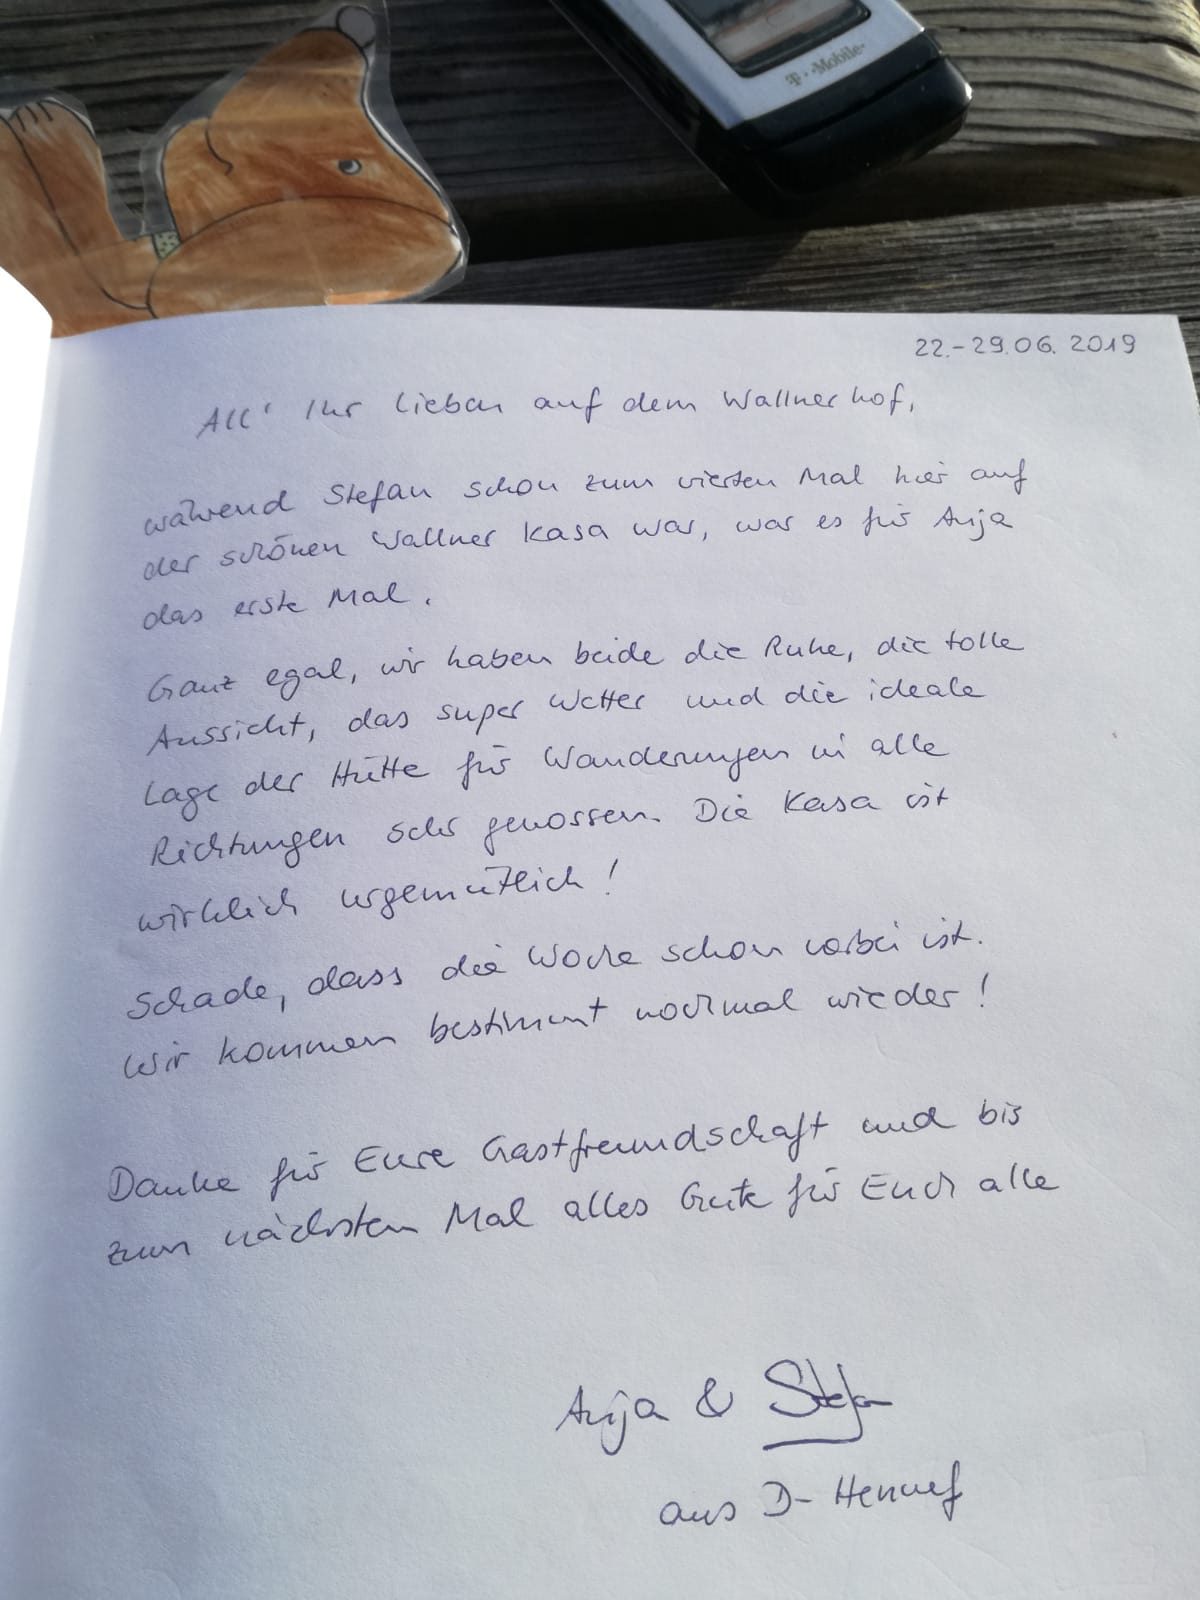 T··Mobile·
22.-29.06.2019
All' Ihr Lieben auf dem Wallnerhof,
während Stefan schon zum vierten Mal hier auf
der schönen Wallner Kasa war, war es für Anja
das erste Mal.
Ganz egal, wir haben beide die Ruhe, die tolle
Aussicht, das super Wetter und die ideale
Lage der Hütte für Wanderungen in alle
Richtungen sehr genossen. Die Kasa ist
wirklich urgemütlich!
Schade, dass die Woche schon vorbei ist.
Wir kommen bestimmt nochmal wieder!
Danke für Eure Gastfreundschaft und bis
zum nächsten Mal alles Gute für Euch alle
Anja & Stefan
aus D-Hennef